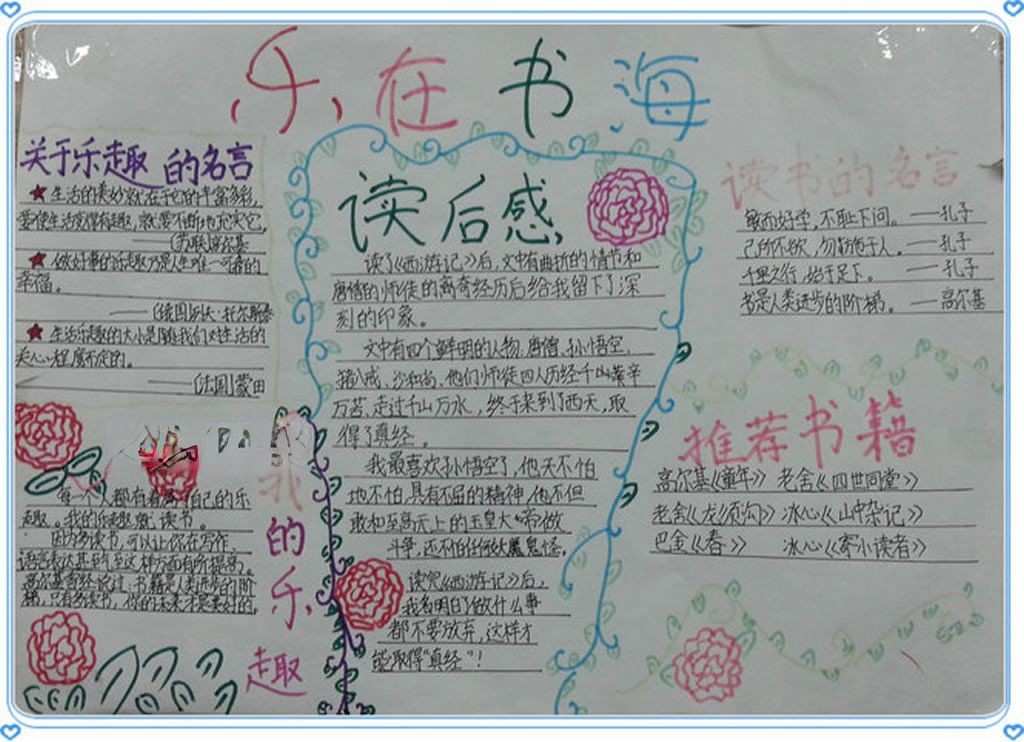 乐在书海
关于乐趣的名言
★生活的美妙就在于它的丰富多彩,
要使生活变得有趣,就要不断地充实它。
——(苏联)高尔基
★做好事的乐趣乃是人生唯一可靠的
幸福。
——(俄国)列夫·托尔斯泰
★生活乐趣的大小是随我们对生活的
关心程度而定的。
——(法国)蒙田
我的乐趣
每一个人都有着属于自己的乐
趣。我的乐趣就是读书。
因为多读书,可以让你在写作
语言表达甚至至这种方面有所提高。
高尔基曾经说过:书籍是人类进步的阶
梯,只有多读书,你的未来才是美好的,
读后感
读了《西游记》后,文中有曲折的情节和
唐僧的师徒的离奇经历后给我留下了深
刻的印象。
文中有四个鲜明的人物,唐僧,孙悟空,
猪八戒,沙和尚,他们师徒四人历经千山万辛
万苦,走过千山万水,终于来到了西天,取
得了真经。
我最喜欢孙悟空了,他天不怕
地不怕,具有不屈的精神,他不但
敢和至高无上的玉皇大帝做
斗争,还不怕任何妖魔鬼怪。
读完《西游记》后,
我名明白了做什么事
都不要放弃,这样才
能取得“真经”!
读书的名言
敏而好学,不耻下问。——孔子
己所不欲,勿施于人。——孔子
千里之行,始于足下。——孔子
书是人类进步的阶梯。——高尔基
推荐书籍
高尔基《童年》 老舍《四世同堂》
老舍《龙须沟》 冰心《山中杂记》
巴金《春》 冰心《寄小读者》